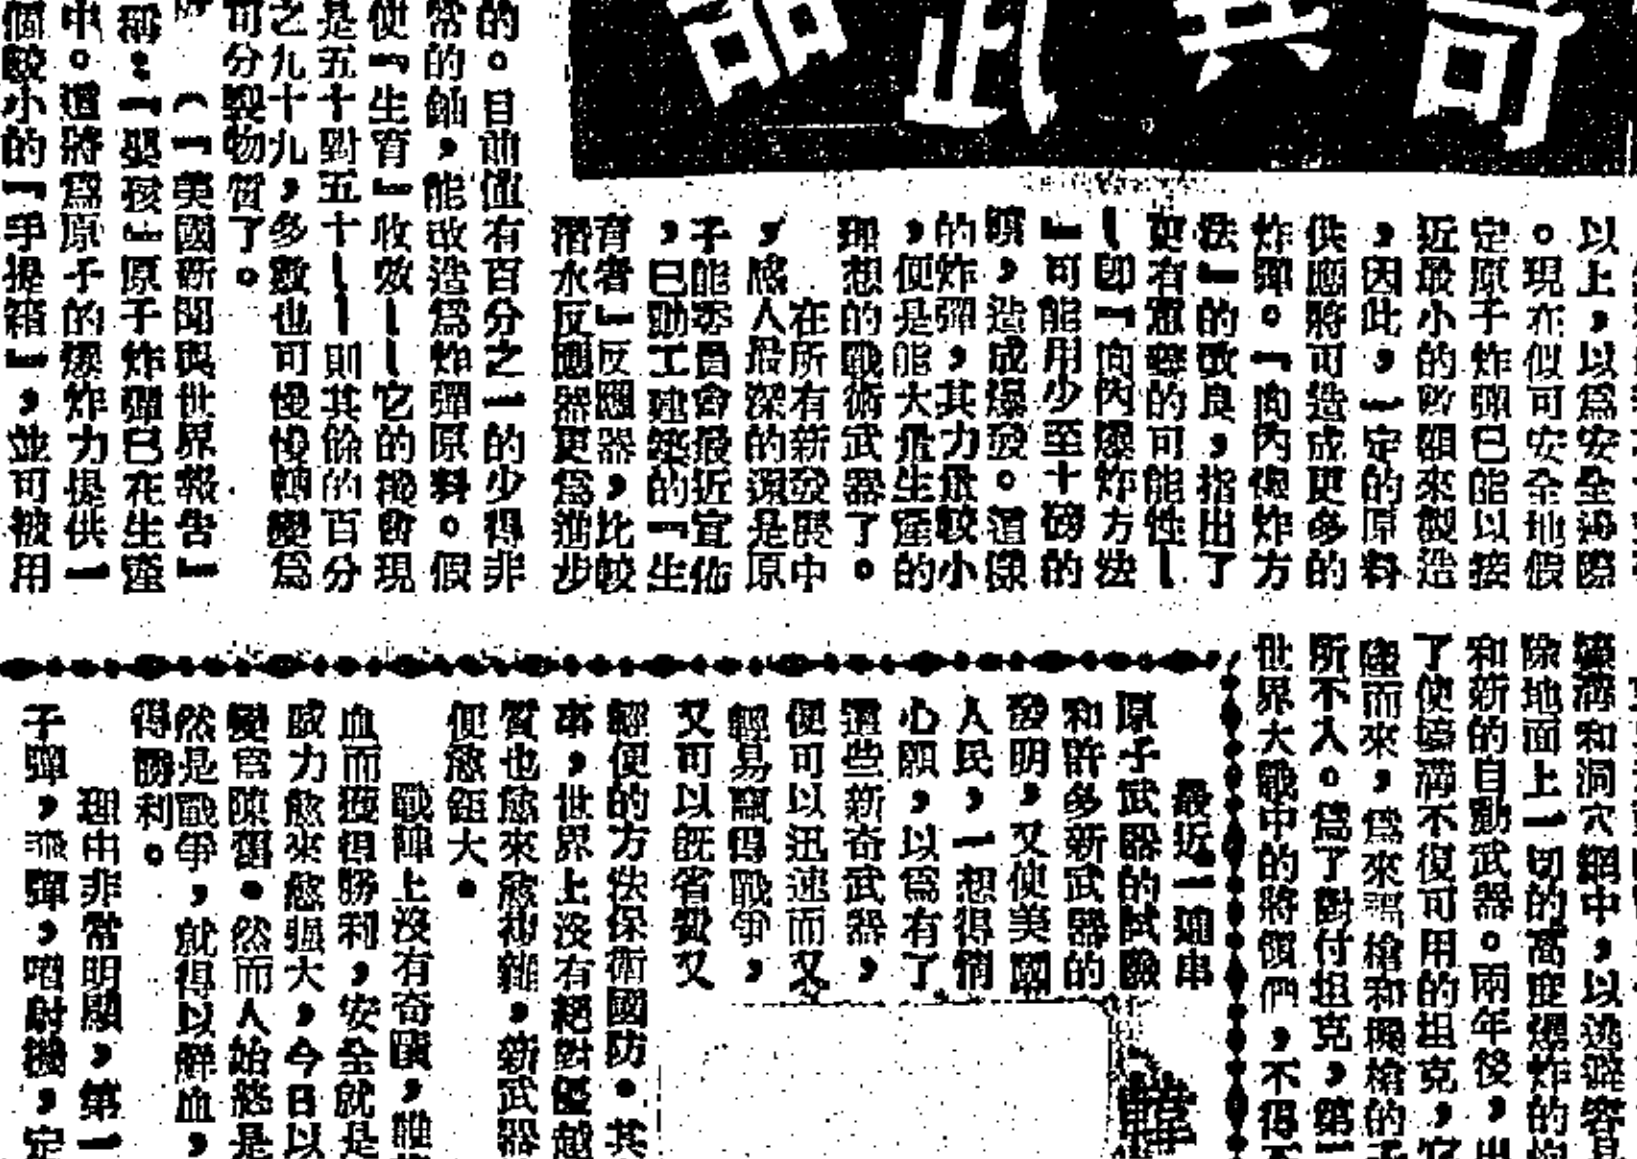 以上，以為安全無際
。現在似可安全地假
定原子炸彈已能以接
近最小的數額來製造
，因此，一定的原料
供應將可造成更多的
炸彈。「向內爆炸方
法」的改良，指出了
更有意義的可能性—
—即「向內爆炸方法
」可能用少至十磅的
鈾，造成爆發。這樣
的炸彈，其力量較小
，便是能大量生產的
理想的戰術武器了。
在所有新發展中
，感人最深的還是原
子能委員會最近宣佈
，已動工建築的「生
育者」反應器，比較
潛水反應器更為進步
的。目前值有百分之一的少得非
常的鈾，能改造為炸彈原料。假
使「生育」收效——它的機會現
是五十對五十——則其餘的百分
之九十九，多數也可慢慢轉變為
可分裂物質了。
（「美國新聞與世界報告」
稱：「嬰孩」原子炸彈已在生產
中。這將為原子的爆炸力提供一
個較小的「手提箱」，並可被用
壕溝和洞穴網中，以逃避容易
除地面上一切的高度爆炸的炮
和新的自動武器。兩年後，出
了使壕溝不復可用的坦克，它
隆而來，為來福槍和機槍的子
所不入。為了對付坦克，第二
世界大戰中的將領們，不得不
最近一連串
原子武器的試驗
和許多新武器的
發明，又使美國
人民，一想得悄
心願，以為有了
這些新奇武器，
便可以迅速而又
輕易贏得戰爭，
又可以既省費又
輕便的方法保衛國防。其
事，世界上沒有絕對優越
質也愈來愈複雜，新武器
便愈鉅大。
戰陣上沒有奇蹟，唯
血而獲得勝利，安全就是
威力愈來愈強大，今日以
變為陳舊。然而人始終是
然是戰爭，就得以鮮血，
得勝利。
理由非常明顯，第一
子彈，飛彈，噴射機，定